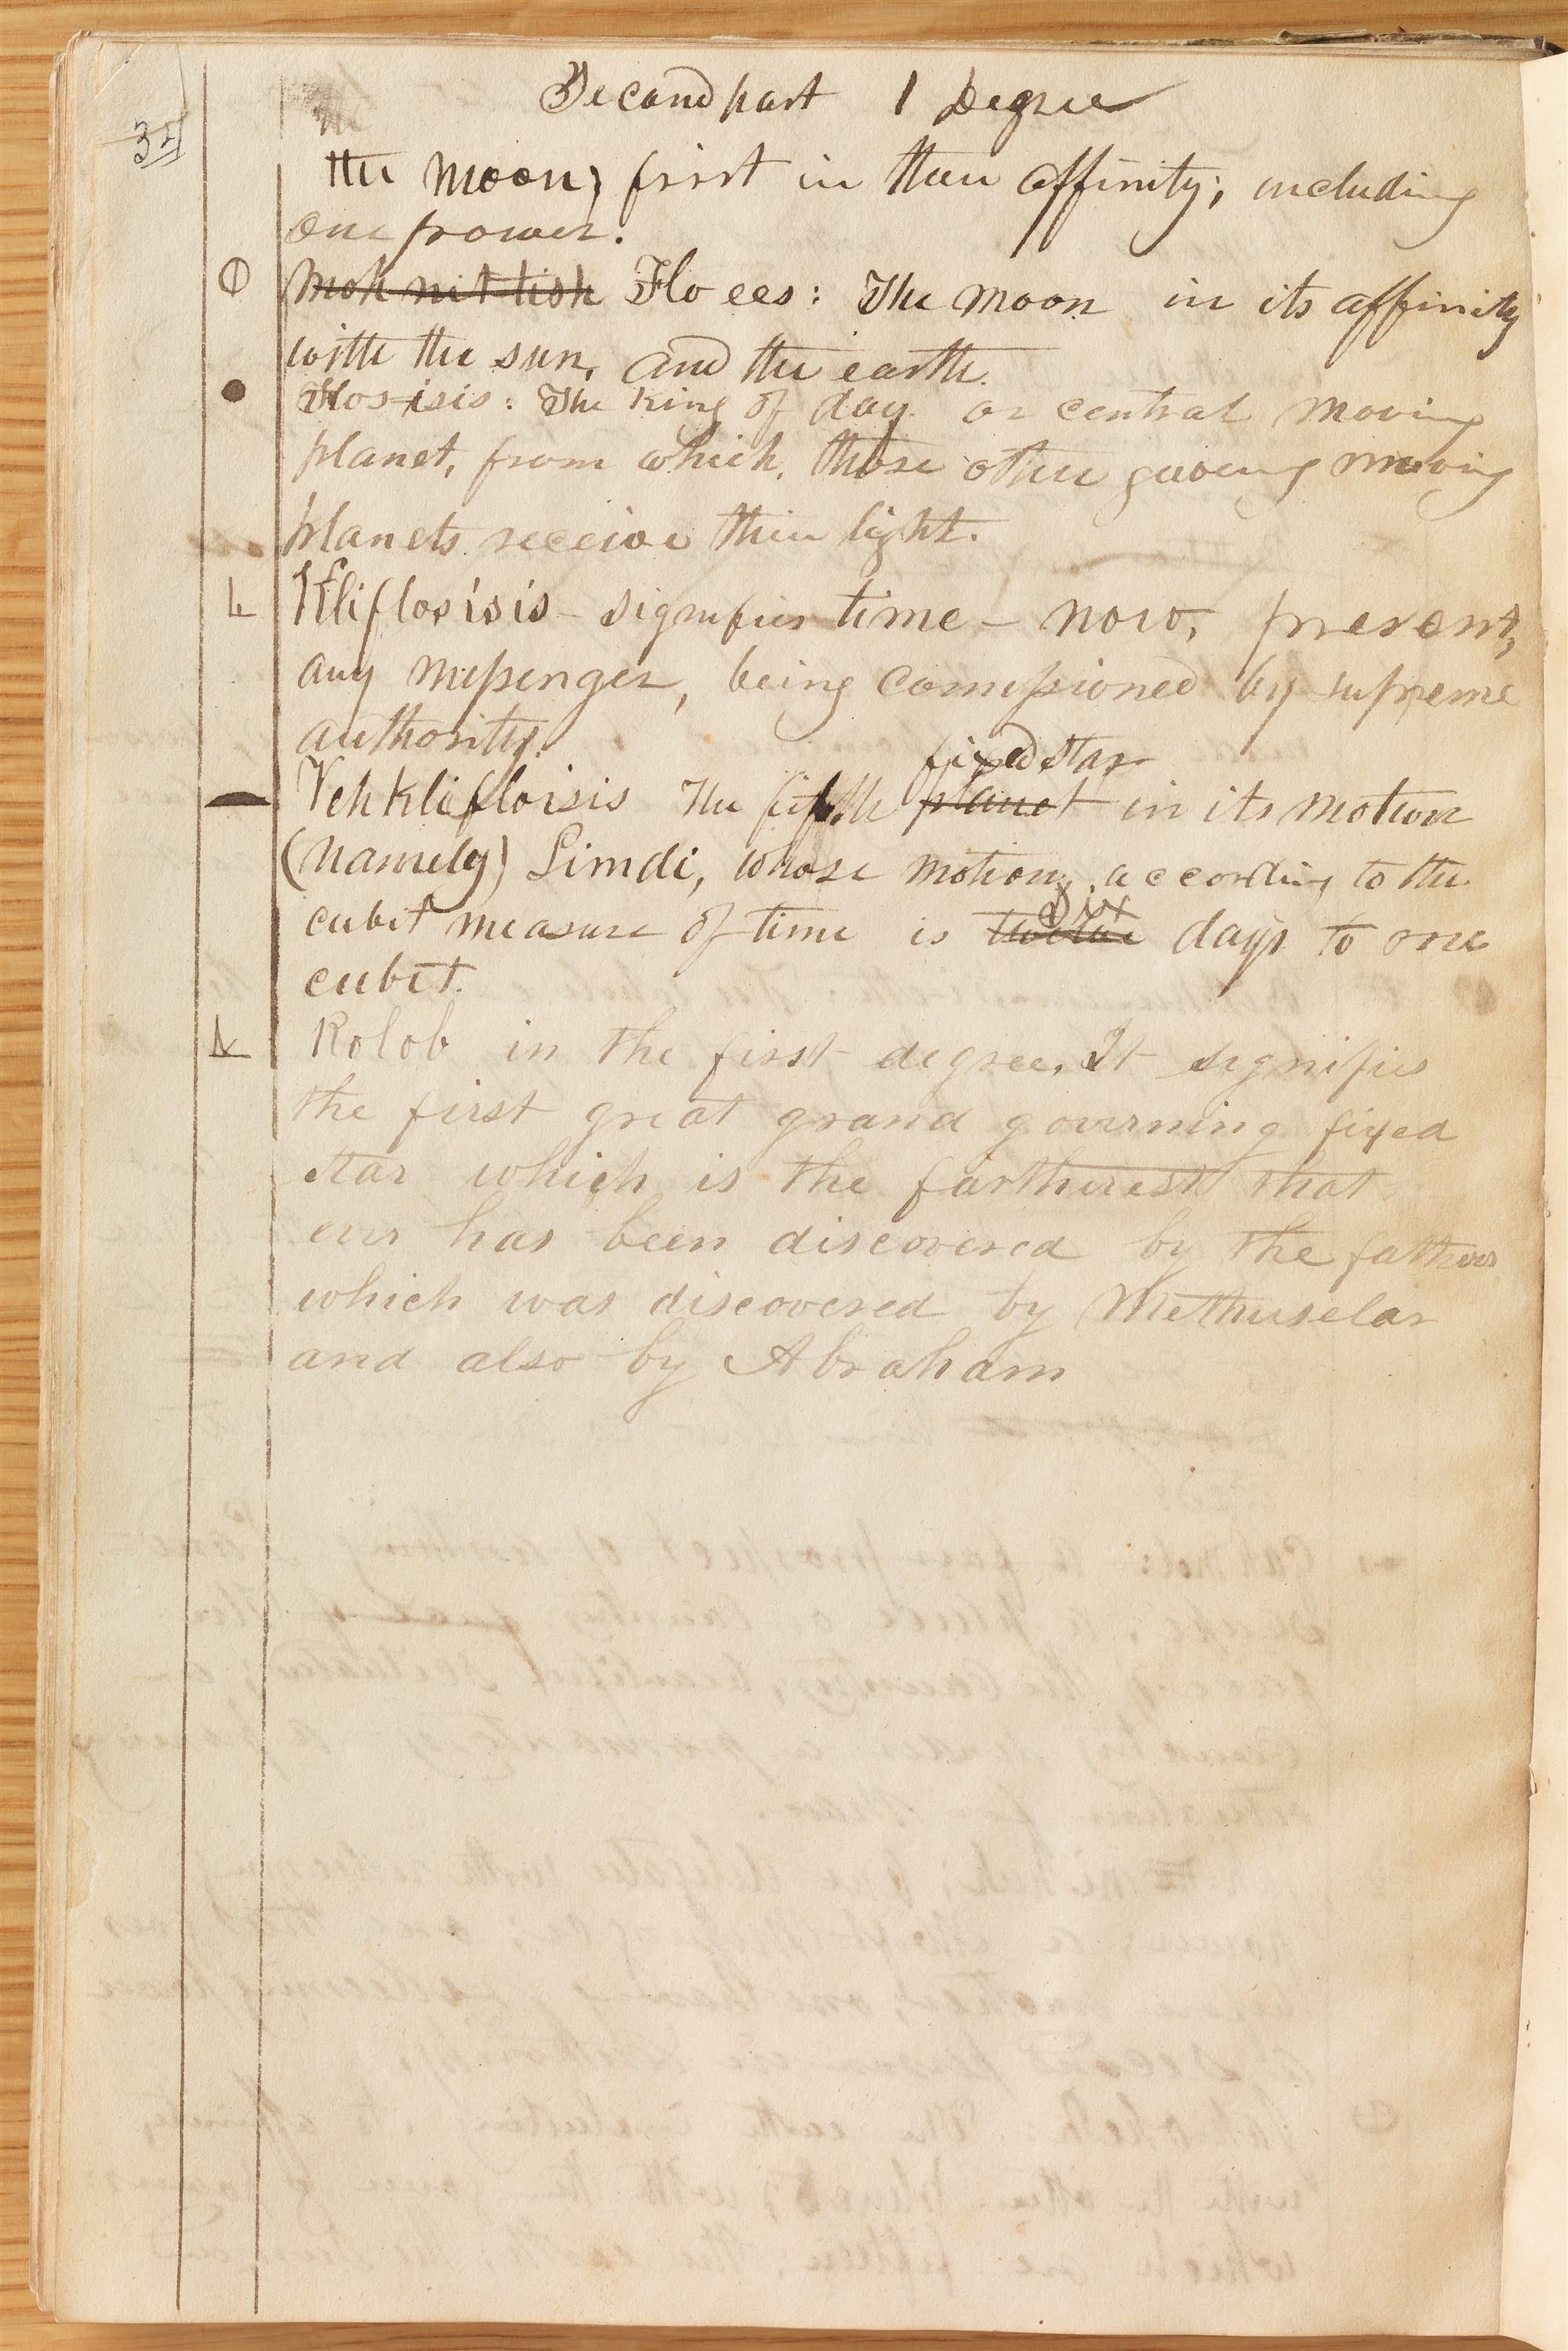 Second part 1 Degree
34
the moon, first in their affinity; including
one power.
Moh nit tish Flo ees: The moon in its affinity
with the sun, and the earth.
Flos-isis: The King of day or central moving
planet, from which, those other moving
planets receive their light.
Kliflosisis - signifies time - now, present,
any messenger, being comissioned by supreme
authority.
fixed star
Vehkliflosisis The fifth planet in its motion
(namely) Limdi, whose motion, according to the
six
cubit measure of time is twelve days to one
cubit.
Kolob in the first degree. It signifies
the first great grand governing fixed
star which is the fartherest that
ever has been discovered by the fathers
which was discovered by Methuselar
and also by Abraham